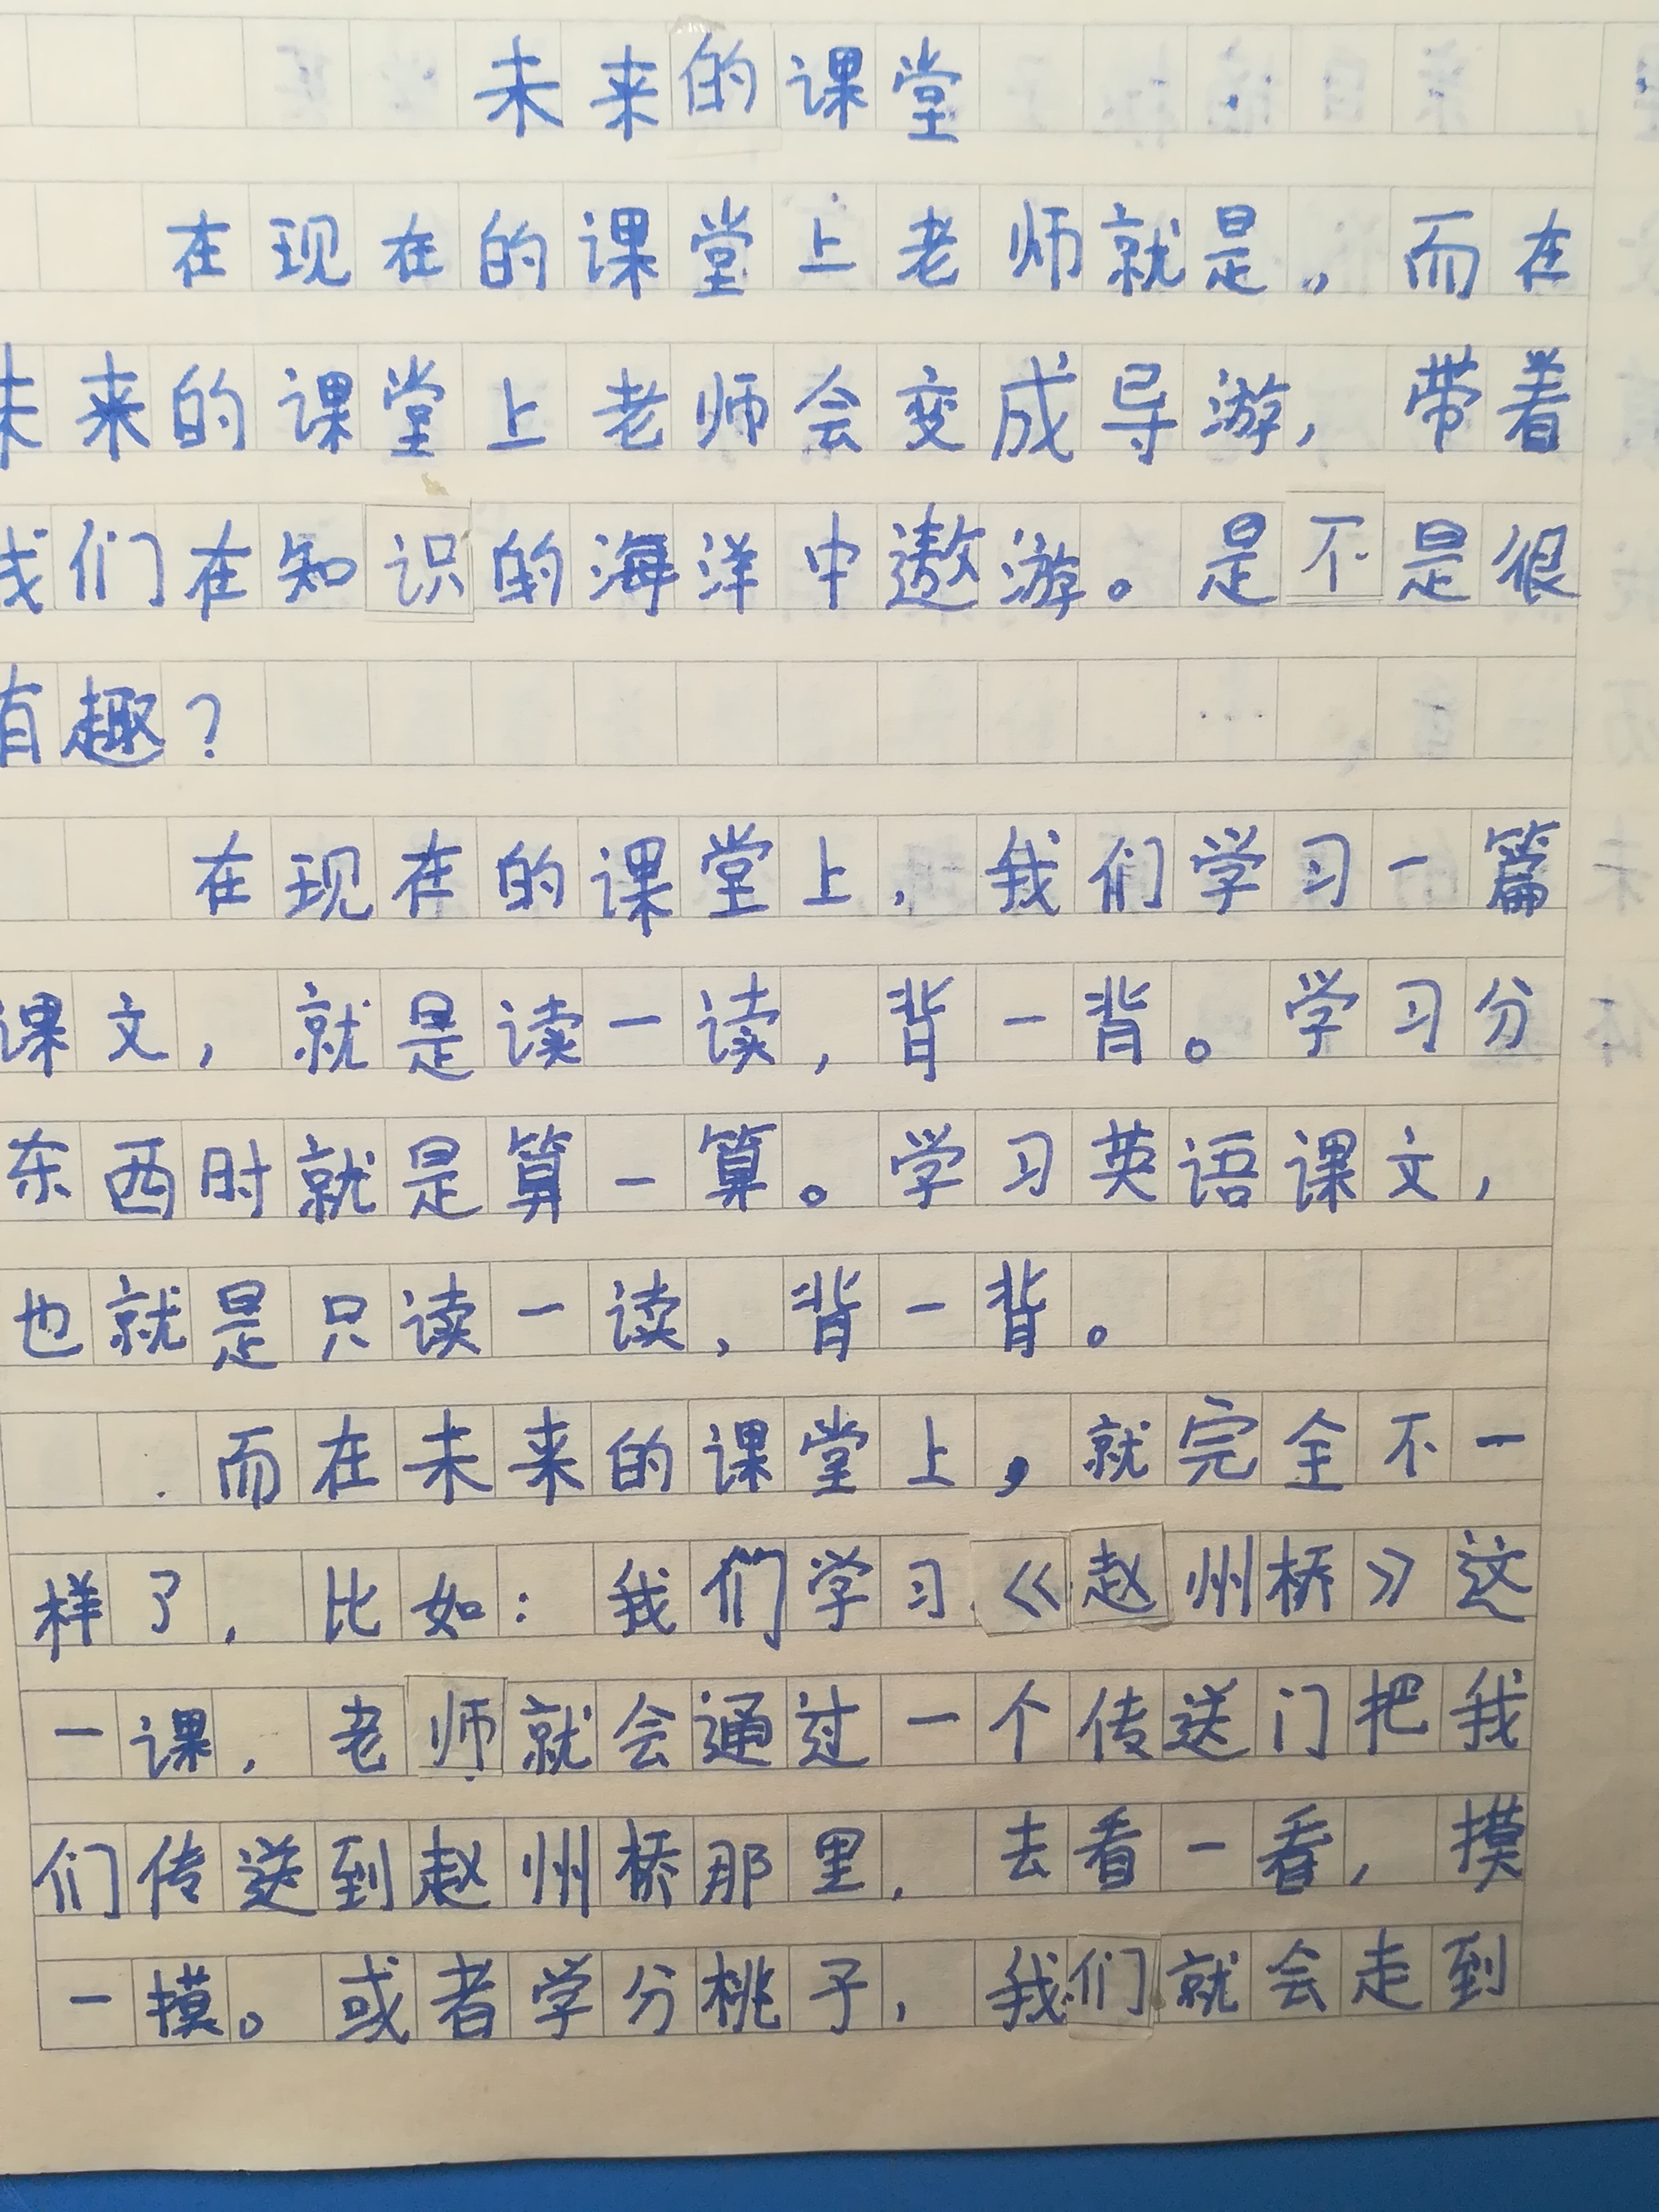 未来的课堂
在现在的课堂上老师就是。而在
未来的课堂上老师会变成导游，带着
我们在知识的海洋中遨游。是不是很
有趣？
在现在的课堂上，我们学习一篇
课文，就是读一读，背一背。学习分
东西时就是算一算。学习英语课文，
也就是只读一读，背一背。
而在未来的课堂上，就完全不一
样了，比如：我们学习《赵州桥》这
一课，老师就会通过一个传送门把我
们传送到赵州桥那里，去看一看，摸
一摸。或者学分桃子，我们就会走到